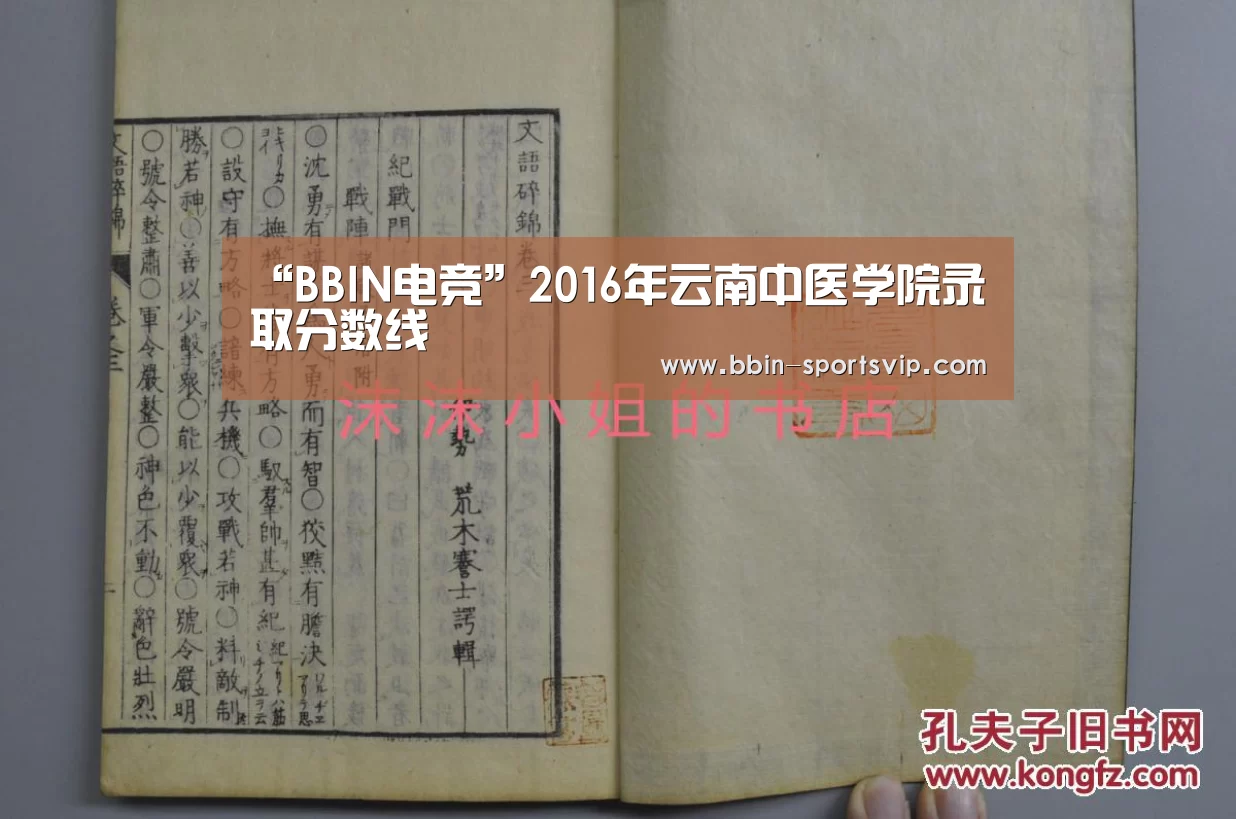 文語碎錦卷三
荒木蹇士諤輯
紀戰門
戰陣
○沈勇有謀
勇而有智○狡黠有膽決
○撫
有方略○馭羣帥甚有紀
○設守有方略○諳練兵機○攻戰若神○料敵制
勝若神○善以少擊眾○能以少覆眾○號令嚴明
○號令整肅○軍令嚴整○神色不動○辭色壯烈
文語碎錦
“BBIN电竞”2016年云南中医学院录
取分数线
www.bbin-sportsvip.com
沫沫小姐的书店
孔夫子旧书网
www.kongfz.com